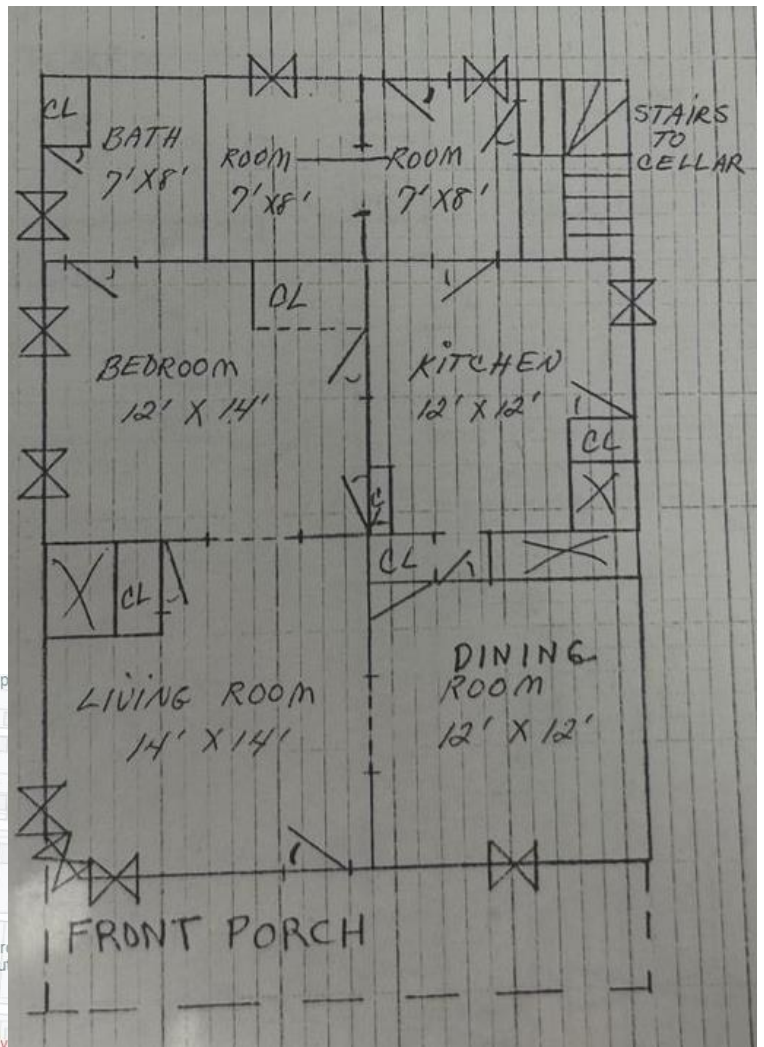 CL
BATH
7' X 8'
ROOM
7' X 8'
ROOM
7' X 8'
STAIRS
TO
CELLAR
CL
BEDROOM
12' X 14'
KITCHEN
12' X 12'
CL
CL
CL
CL
LIVING ROOM
14' X 14'
DINING
ROOM
12' X 12'
FRONT PORCH